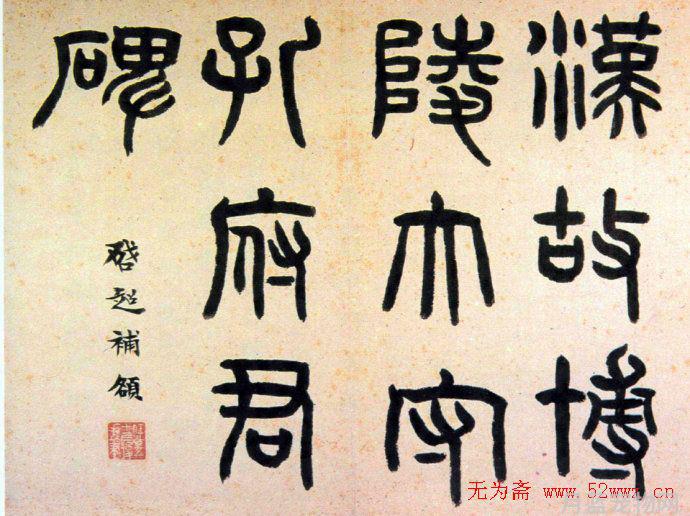 漢故博
陵太守
孔府君
碑
啓超補額
无为斋 www.52wwz.cn